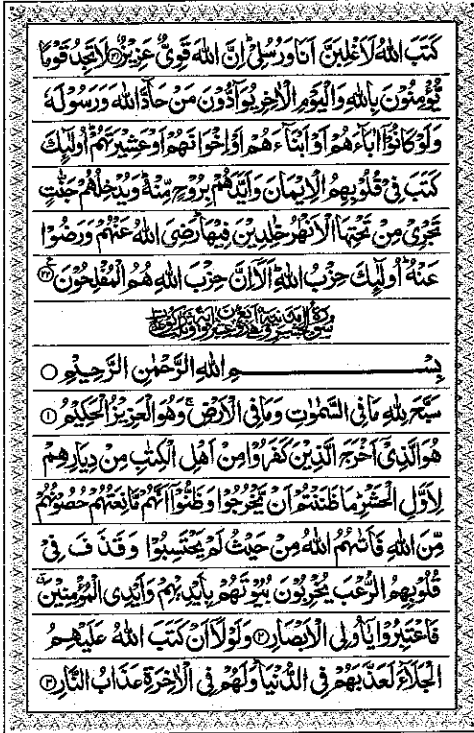 كَتَبَ اللهُ لَاَغْلِبَنَّ اَنَا وَرُسُلِیْ ؕ اِنَّ اللهَ قَوِیٌّ عَزِیْزٌ ﴿۲۱﴾ لَا تَجِدُ قَوْمًا
یُّؤْمِنُوْنَ بِاللهِ وَالْیَوْمِ الْاٰخِرِ یُوَآدُّوْنَ مَنْ حَآدَّ اللهَ وَرَسُوْلَهٗ
وَلَوْ كَانُوْۤا اٰبَآءَهُمْ اَوْ اَبْنَآءَهُمْ اَوْ اِخْوَانَهُمْ اَوْ عَشِیْرَتَهُمْ ؕ اُولٰٓىِٕكَ
كَتَبَ فِیْ قُلُوْبِهِمُ الْاِیْمَانَ وَاَیَّدَهُمْ بِرُوْحٍ مِّنْهُ ؕ وَیُدْخِلُهُمْ جَنّٰتٍ
تَجْرِیْ مِنْ تَحْتِهَا الْاَنْهٰرُ خٰلِدِیْنَ فِیْهَا ؕ رَضِیَ اللهُ عَنْهُمْ وَرَضُوْا
عَنْهُ ؕ اُولٰٓىِٕكَ حِزْبُ اللهِ ؕ اَلَاۤ اِنَّ حِزْبَ اللهِ هُمُ الْمُفْلِحُوْنَ ﴿۲۲﴾
بِسْمِ اللهِ الرَّحْمٰنِ الرَّحِیْمِ
سَبَّحَ لِلّٰهِ مَا فِی السَّمٰوٰتِ وَمَا فِی الْاَرْضِ ۚ وَهُوَ الْعَزِیْزُ الْحَكِیْمُ ﴿۱﴾
هُوَ الَّذِیْۤ اَخْرَجَ الَّذِیْنَ كَفَرُوْا مِنْ اَهْلِ الْكِتٰبِ مِنْ دِیَارِهِمْ
لِاَوَّلِ الْحَشْرِ ؕ مَا ظَنَنْتُمْ اَنْ یَّخْرُجُوْا وَظَنُّوْۤا اَنَّهُمْ مَّانِعَتُهُمْ حُصُوْنُهُمْ
مِّنَ اللهِ فَاَتٰىهُمُ اللهُ مِنْ حَیْثُ لَمْ یَحْتَسِبُوْا وَقَذَفَ فِیْ
قُلُوْبِهِمُ الرُّعْبَ یُخْرِبُوْنَ بُیُوْتَهُمْ بِاَیْدِیْهِمْ وَاَیْدِی الْمُؤْمِنِیْنَ ۗ
فَاعْتَبِرُوْا یٰۤاُولِی الْاَبْصَارِ ﴿۲﴾ وَلَوْلَاۤ اَنْ كَتَبَ اللهُ عَلَیْهِمُ
الْجَلَآءَ لَعَذَّبَهُمْ فِی الدُّنْیَا ؕ وَلَهُمْ فِی الْاٰخِرَةِ عَذَابُ النَّارِ ﴿۳﴾